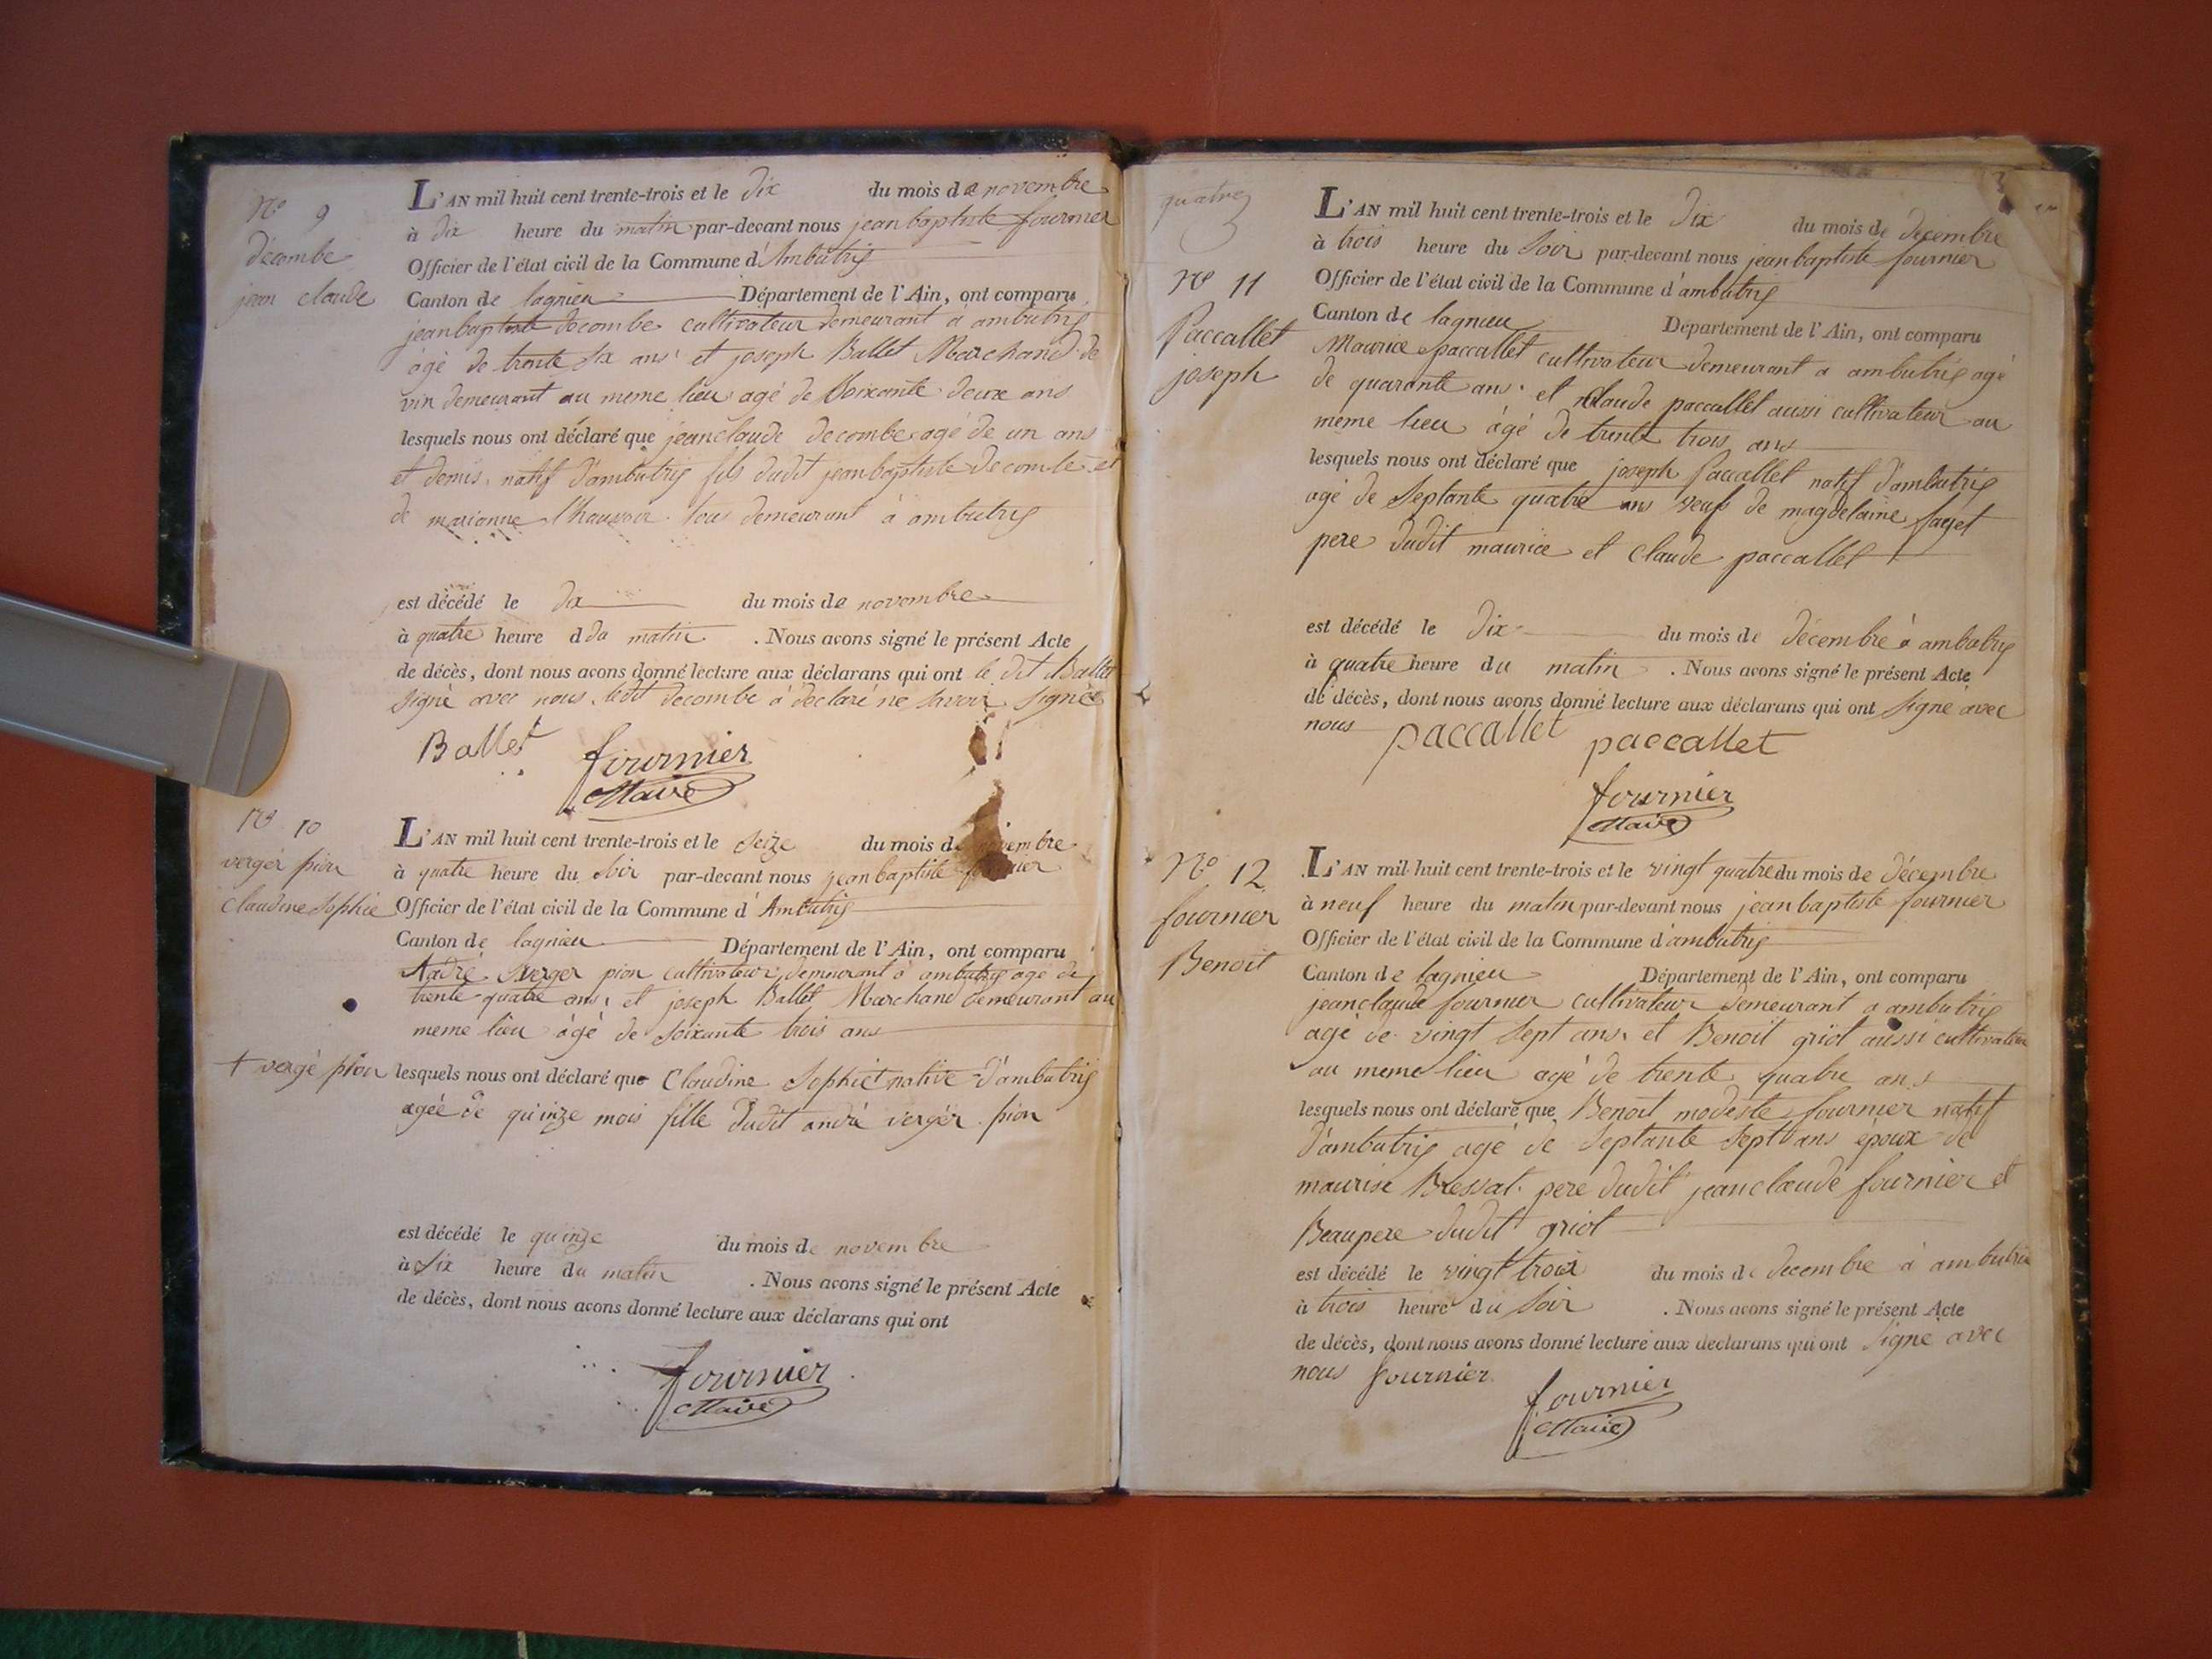 N° 9
décombe
jean claude
L'AN mil huit cent trente-trois et le dix du mois de novembre
à dix heure du matin par-devant nous jean baptiste fournier
Officier de l'état civil de la Commune d'Ambutrig
Canton de lagnieu Département de l'Ain, ont comparu
jean baptiste decombe cultivateur demeurant a ambutrig
agé de trente six ans et joseph Ballet Marchand de
vin demeurant au meme lieu agé de Soixante deux ans
lesquels nous ont déclaré que jean claude decombe agé de un ans
et demis natif d'ambutrig fils dudit jean baptiste decombe et
de marianne tous demeurant à ambutrig
est décédé le dix du mois de novembre
à quatre heure d du matin . Nous avons signé le présent Acte
de décès, dont nous avons donné lecture aux déclarans qui ont le dit Ballet
Signé avec nous ledit decombe à déclaré ne Savoir Signée
Ballet fournier
Maire
N° 10
vergér pion
Claudine Sophie
L'AN mil huit cent trente-trois et le Seize du mois de novembre
à quatre heure du Soir par-devant nous jean baptiste fournier
Officier de l'état civil de la Commune d'Ambutrig
Canton de lagnieu Département de l'Ain, ont comparu
André verger pion cultivateur demeurant à ambutrig age de
trente quatre ans et joseph Ballet Marchand demeurant au
meme lieu àgé de Soixante trois ans
+ vergé pion
lesquels nous ont déclaré que Claudine Sophie + native d'ambutrig
agée de quinze mois fille dudit andré vergér pion
est décédé le quinze du mois de novembre
à Six heure du matin . Nous avons signé le présent Acte
de décès, dont nous avons donné lecture aux déclarans qui ont
fournier
Maire
quatre
3
N° 11
Paccallet
joseph
L'AN mil huit cent trente-trois et le Dix du mois de décembre
à trois heure du Soir par-devant nous jean baptiste fournier
Officier de l'état civil de la Commune d'ambutrig
Canton de lagnieu Département de l'Ain, ont comparu
Maurice paccallet cultivateur demeurant a ambutrig agé
de quarante ans et Claude paccallet aussi cultivateur au
meme lieu àgé de trente trois ans
lesquels nous ont déclaré que joseph Paccallet natif d'ambutrig
agé de Septante quatre ans veuf de magdelaine fayet
pere dudit maurice et Claude paccallet
est décédé le Dix du mois de décembre à ambutrig
à quatre heure du matin . Nous avons signé le présent Acte
de décès, dont nous avons donné lecture aux déclarans qui ont Signé avec
nous paccallet paccallet
fournier
Maire
N° 12
fournier
Benoit
L'AN mil huit cent trente-trois et le vingt quatre du mois de décembre
à neuf heure du matin par-devant nous jean baptiste fournier
Officier de l'état civil de la Commune d'ambutrig
Canton de lagnieu Département de l'Ain, ont comparu
jean claude fournier cultivateur demeurant a ambutrig
agé de vingt Sept ans et Benoit griot aussi cultivateur
au meme lieu agé de trente quatre ans
lesquels nous ont déclaré que Benoit modeste fournier natif
d'ambutrig agé de Septante Sept ans époux de
maurise Bressat pere dudit jean claude fournier et
Beaupere dudit griot
est décédé le vingt trois du mois de decembre à ambutrig
à trois heure du Soir . Nous avons signé le présent Acte
de décès, dont nous avons donné lecture aux declarans qui ont Signé avec
nous fournier
fournier
Maire